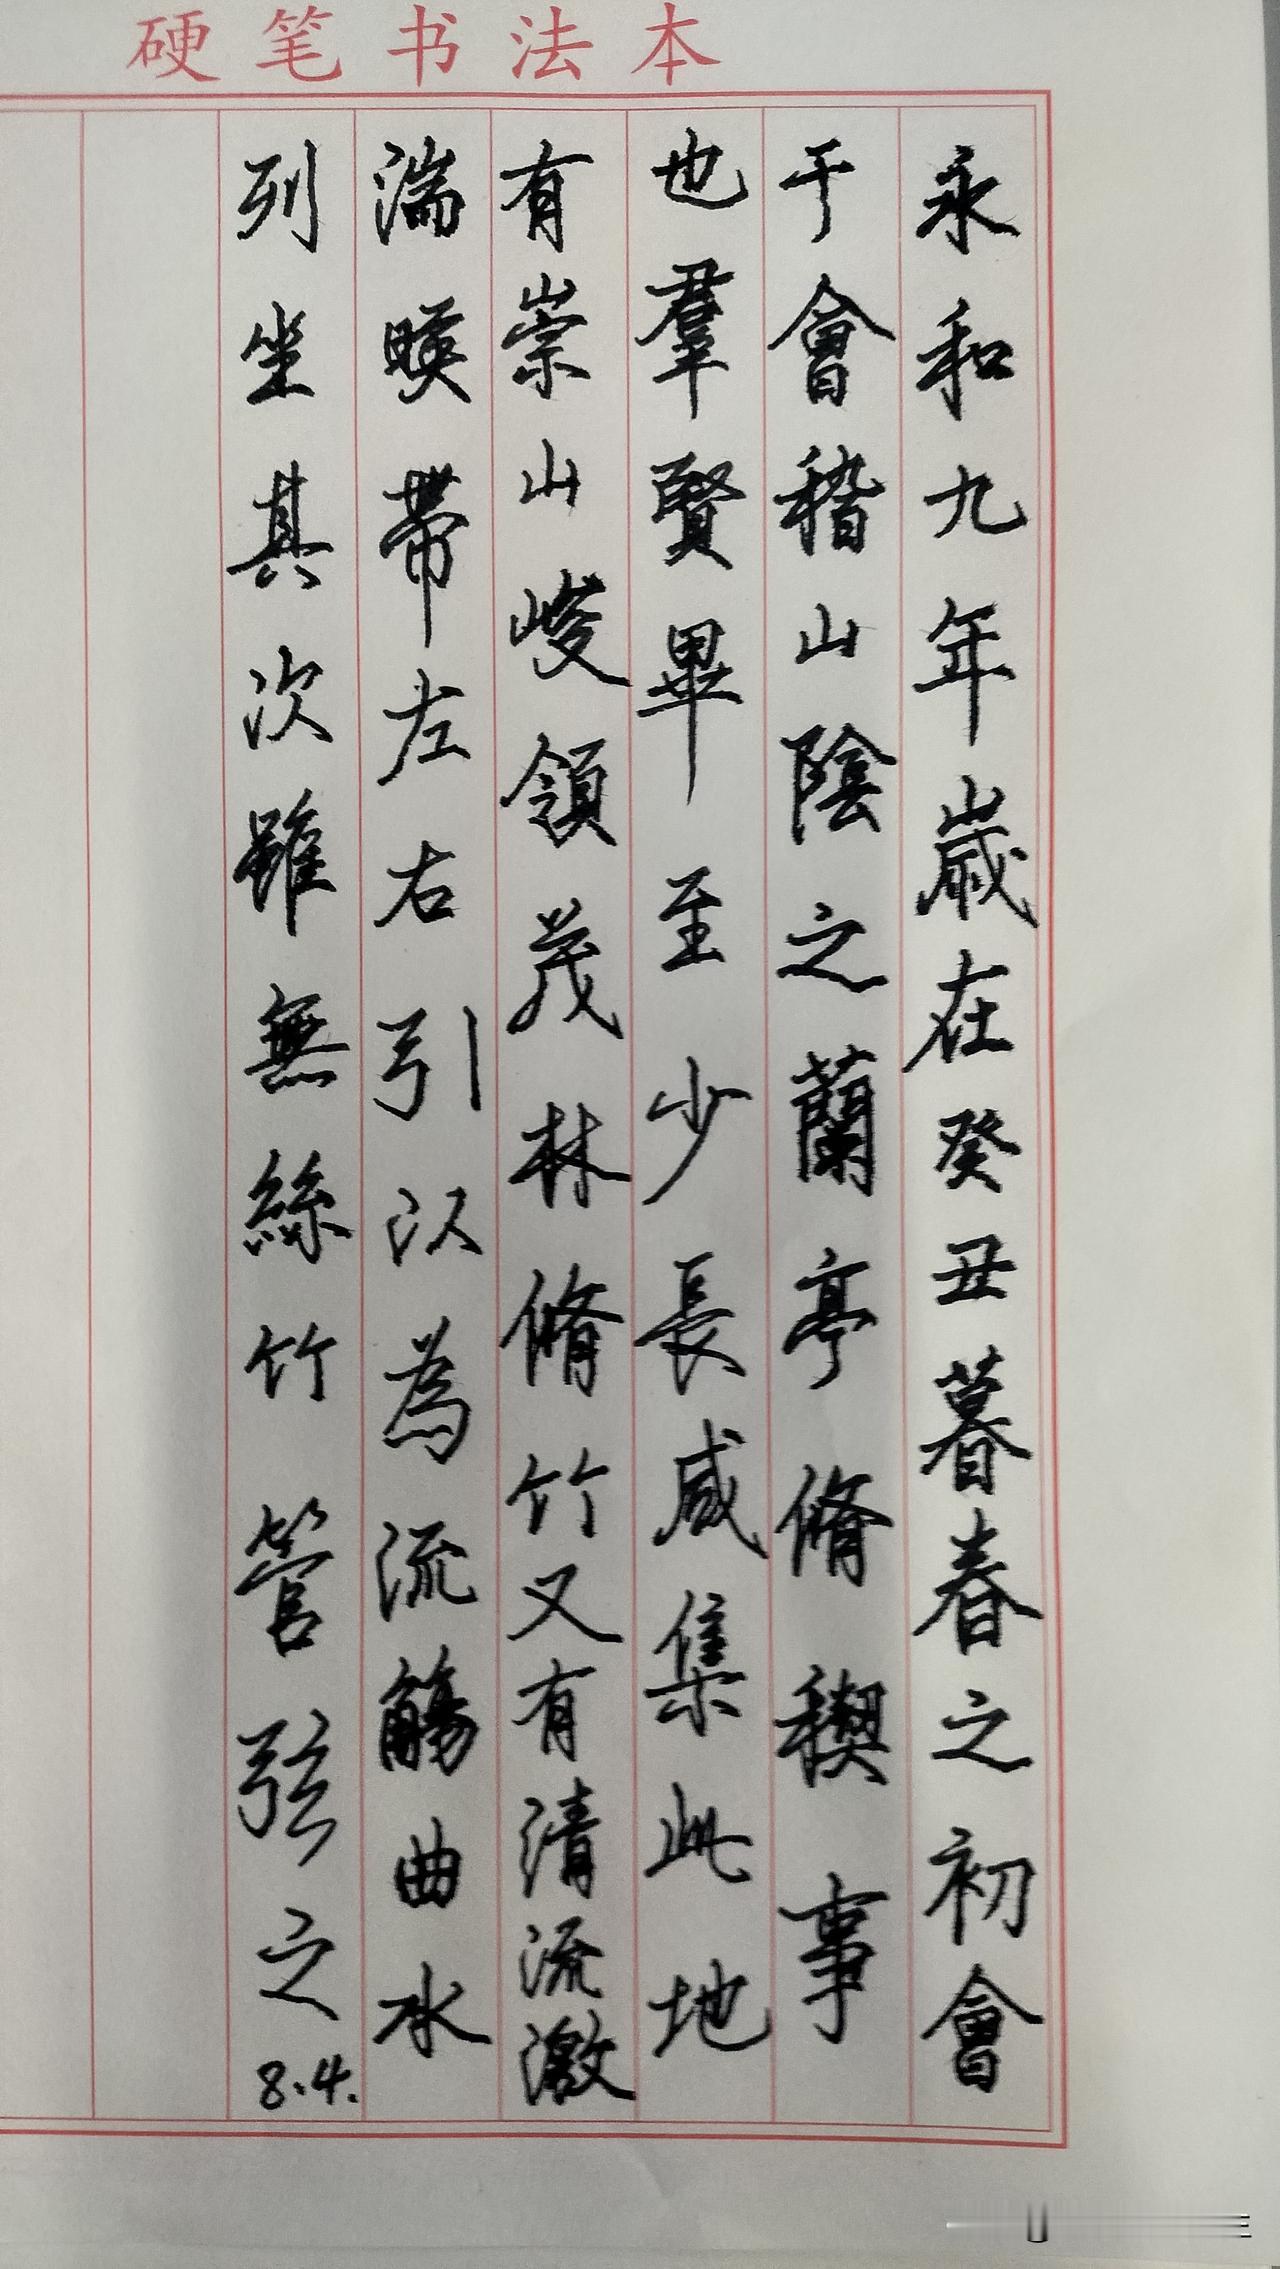 硬笔书法本
永和九年歲在癸丑暮春之初會
于會稽山陰之蘭亭脩稧事
也羣賢畢至少長咸集此地
有崇山峻領茂林脩竹又有清流激
湍暎帶左右引以為流觴曲水
列坐其次雖無絲竹管弦之
8.4.